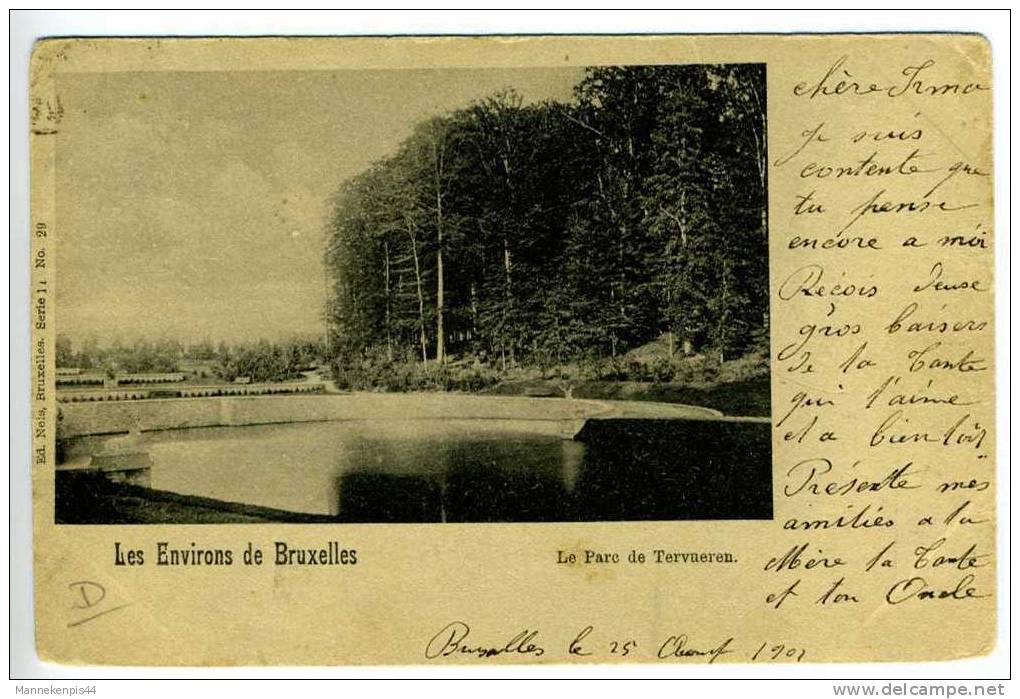 Ed. Nels, Bruxelles. Serie 11 No. 29
chère Irma
Je suis
contente que
tu pense
encore a moi
Reçois deuse
gros baisers
de la Tante
qui t'aime
et a bientôt
Présente mes
amitiés a ta
Mère ta Tante
et ton Oncle
Les Environs de Bruxelles
Le Parc de Tervueren.
D
Bruxelles le 25
Mannekenpis44
delcampe.net